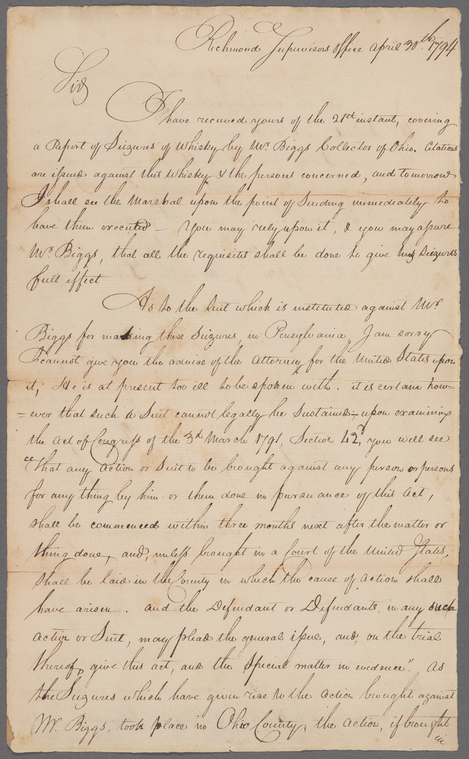 Richmond Supervisors office April 30th 1794
Sir,
I have received yours of the 21st instant, covering
a Report of Seizures of Whisky by Mr. Biggs Collector of Ohio. Citations
are issued against this Whisky & the persons concerned, and tomorrow
I shall see the Marshal upon the point of sending immediately to
have them executed — You may rely upon it, & you may assure
Mr. Biggs, that all the requisites shall be done to give his Seizures
full effect
As to the Suit which is instituted against Mr.
Biggs for making these Seizures, in Pensylvania, I am sorry
I cannot give you the advise of the Attorney for the United States upon
it; He is at present too ill to be spoken with. it is certain how-
=ever that such a Suit cannot legally be Sustained — upon examining
the Act of Congress of the 3d March 1791, Section 42d you will see
"that any action or Suit to be brought against any person or persons
for any thing by him or them done in pursuance of this Act,
shall be commenced within three months next after the matter or
thing done, and, unless brought in a Court of the United States,
shall be laid in the County in which the cause of action shall
have arisen. and the Defendant or Defendants, in any such
action or Suit, may plead the general issue, and, on the trial
thereof, give this act, and the special matter in evidence". As
the Seizures which have given rise to the Action brought against
Mr. Biggs, took place in Ohio County, the Action, if brought
in